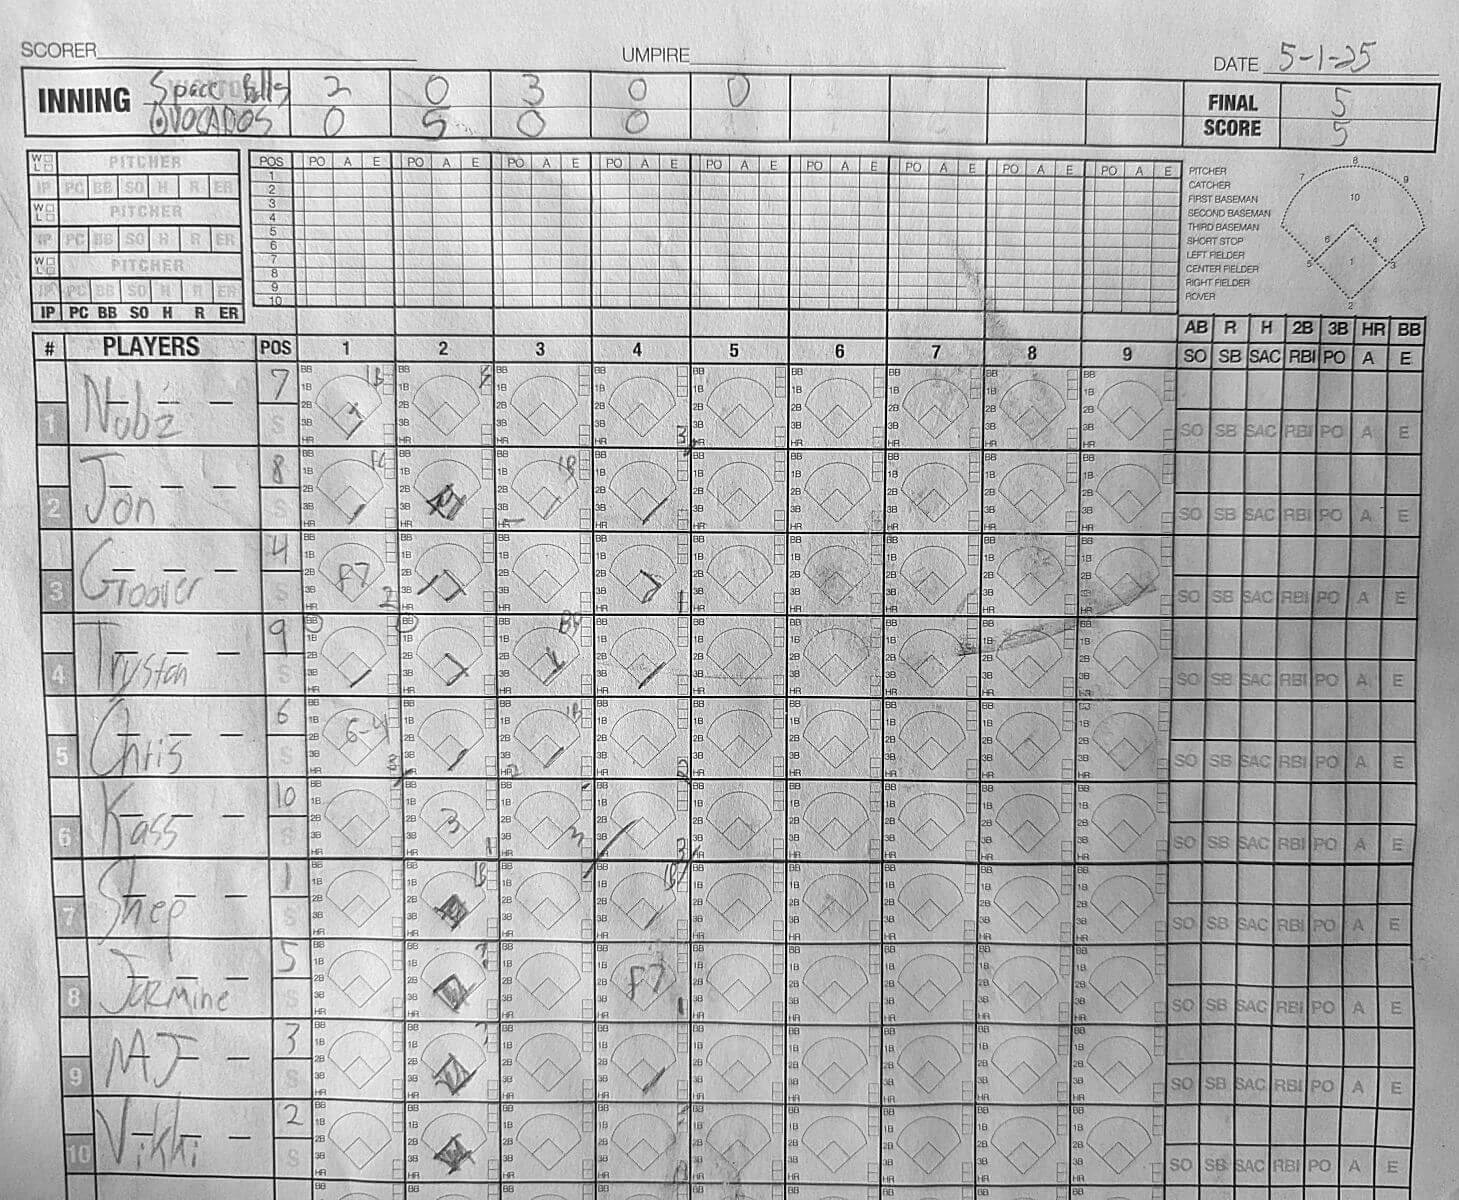 SCORER UMPIRE DATE 5-1-25
INNING Space Balls 2 0 3 0 0 FINAL SCORE 5
AVOCADOS 0 5 0 0 5
W L PITCHER POS PO A E PO A E PO A E PO A E PO A E PO A E PO A E PO A E PO A E
IP PC BB SO H R ER
W L PITCHER
IP PC BB SO H R ER
W L PITCHER
IP PC BB SO H R ER
IP PC BB SO H R ER
1
2
3
4
5
6
7
8
9
10
PITCHER
CATCHER
FIRST BASEMAN
SECOND BASEMAN
THIRD BASEMAN
SHORT STOP
LEFT FIELDER
CENTER FIELDER
RIGHT FIELDER
ROVER
8
7 9
10
6 4
5 1 3
2
AB R H 2B 3B HR BB
# PLAYERS POS 1 2 3 4 5 6 7 8 9 SO SB SAC RBI PO A E
1 Nubz 7 S 1B 3 SO SB SAC RBI PO A E
2 Jon 8 S 1B SO SB SAC RBI PO A E
3 Groover 4 S F7 2 1 SO SB SAC RBI PO A E
4 Trystan 9 S BB SO SB SAC RBI PO A E
5 Chris 6 S 6-4 3 1B 2 2 SO SB SAC RBI PO A E
6 Kass 10 S 3 1 3 3 SO SB SAC RBI PO A E
7 Shep 1 S 1B 1B SO SB SAC RBI PO A E
8 Jarmine 5 S F7 1 SO SB SAC RBI PO A E
9 MJ 3 S SO SB SAC RBI PO A E
10 Vikki 2 S SO SB SAC RBI PO A E